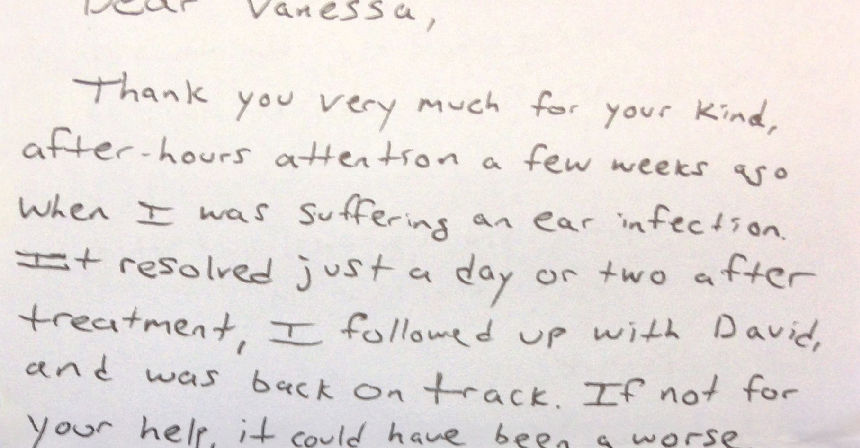 Dear Vanessa,
Thank you very much for your kind,
after-hours attention a few weeks ago
when I was suffering an ear infection.
It resolved just a day or two after
treatment, I followed up with David,
and was back on track. If not for
your help, it could have been a worse